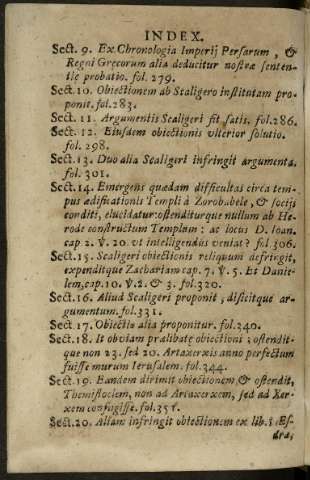 INDEX.
Sect. 9. Ex Chronologia Imperij Persarum, &
Regni Grecorum alia deducitur nostræ senten-
tiæ probatio. fol. 279.
Sect. 10. Obiectionem ab Scaligero institutam pro-
ponit. fol. 283.
Sect. 11. Argumentis Scaligeri fit satis. fol. 286.
Sect. 12. Eiusdem obiectionis vlterior solutio.
fol. 298.
Sect. 13. Duo alia Scaligeri infringit argumenta.
fol. 301.
Sect. 14. Emergens quædam difficultas circa tem-
pus ædificationis Templi à Zorobabele, & socijs
conditi, elucidatur: ostenditurque nullum ab He-
rode constructum Templum: ac locus D. Ioan.
cap. 2. V. 20. vt intelligendus veniat? fol. 306.
Sect. 15. Scaligeri obiectionis reliquum defringit,
expenditque Zachariam cap. 7. V. 5. Et Danie-
lem, cap. 10. V. 2. & 3. fol. 320.
Sect. 16. Aliud Scaligeri proponit, disicitque ar-
gumentum. fol. 331.
Sect 17. Obiectio alia proponitur. fol. 340.
Sect. 18. It obviam prælibatæ obiectioni; ostendit-
que non 23. sed 20. Artaxerxis anno perfectum
fuisse murum Ierusalem. fol. 344.
Sect. 19. Eandem dirimit obiectionem, & ostendit,
Themistoclem, non ad Artaxerxem, sed ad Xer-
xem confugisse. fol. 351.
Sect. 20. Aliam infringit obiectionem ex lib. 1. Es-
dræ,